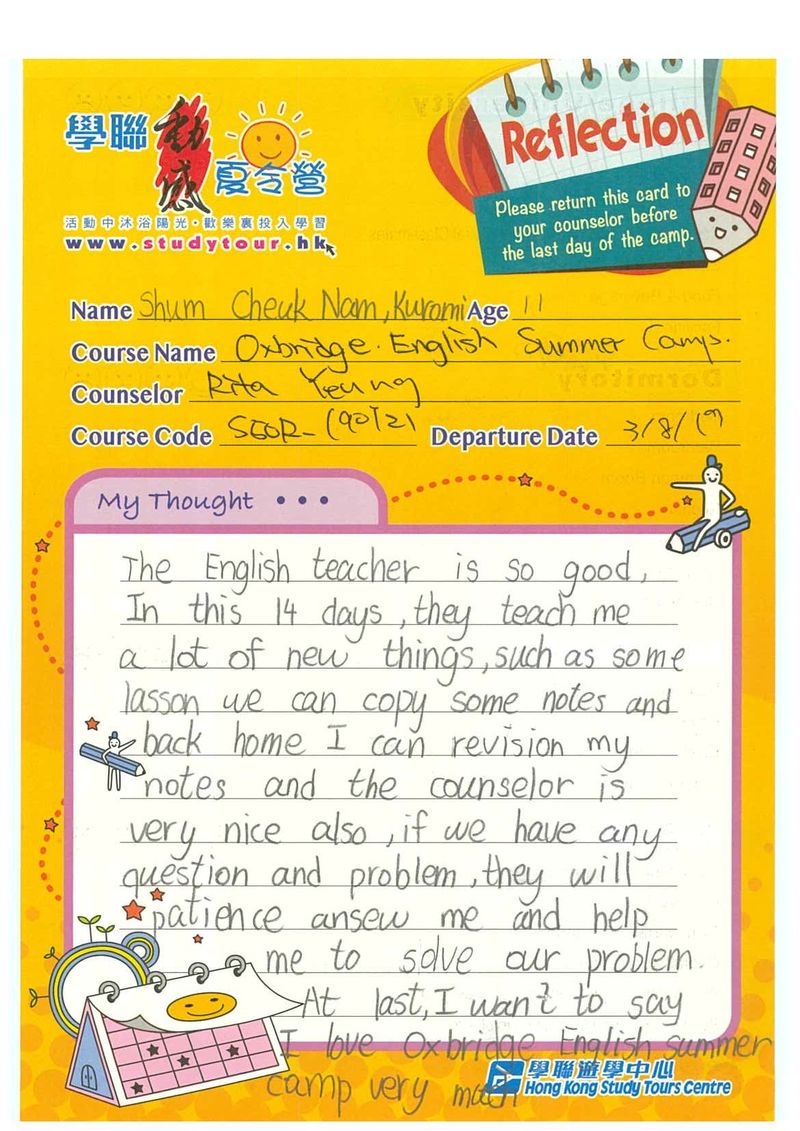 學聯 動感 夏令營
活動中沐浴陽光・歡樂裏投入學習
www.studytour.hk
Reflection
Please return this card to
your counselor before
the last day of the camp.
Name Shum Cheuk Nam, Kuromi Age 11
Course Name Oxbridge. English Summer Camp.
Counselor Rita Yeung
Course Code
Departure Date 3/8/19
My Thought • • •
The English teacher is so good,
In this 14 days, they teach me
a lot of new things, such as some
lasson we can copy some notes and
back home I can revision my
notes and the counselor is
very nice also, if we have any
question and problem, they will
patience ansew me and help
me to solve our problem.
At last, I want to say
I love Oxbridge English summer
camp very much
學聯遊學中心
Hong Kong Study Tours Centre